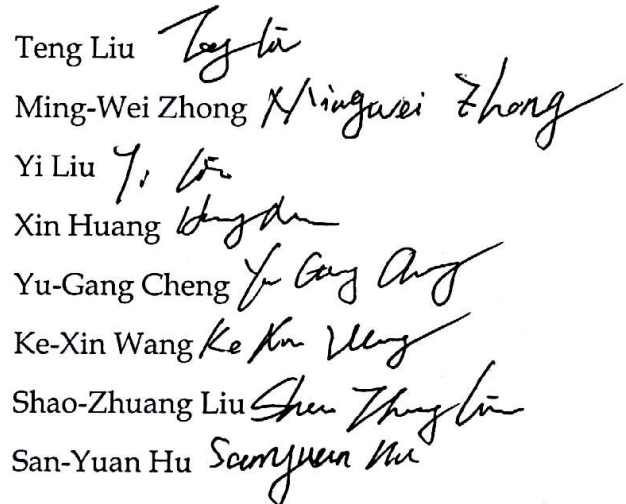 Teng Liu Teng Liu
Ming-Wei Zhong Mingwei Zhong
Yi Liu Yi Liu
Xin Huang
Yu-Gang Cheng Yu Gang Cheng
Ke-Xin Wang Ke Xin Wang
Shao-Zhuang Liu Shao Zhuang Liu
San-Yuan Hu Sanyuan Hu